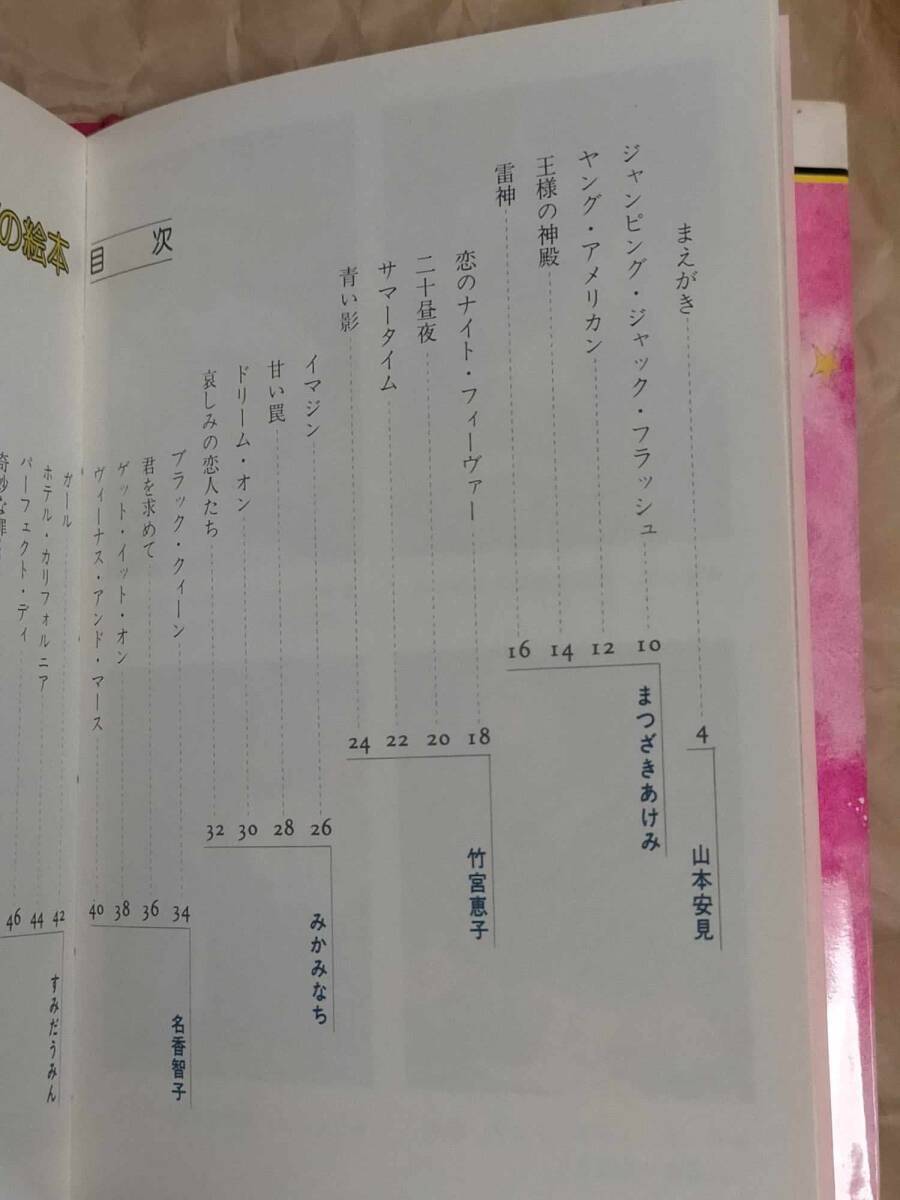 の絵本
目次
まえがき 4
山本安見
ジャンピング・ジャック・フラッシュ 10
ヤング・アメリカン 12
王様の神殿 14
雷神 16
まつざきあけみ
恋のナイト・フィーヴァー 18
二十昼夜 20
サマータイム 22
青い影 24
竹宮恵子
イマジン 26
甘い罠 28
ドリーム・オン 30
哀しみの恋人たち 32
みかみなち
ブラック・クィーン 34
君を求めて 36
ゲット・イット・オン 38
ヴィーナス・アンド・マース 40
名香智子
ガール 42
ホテル・カリフォルニア 44
パーフェクト・デイ 46
奇妙な罪
すみだうみん